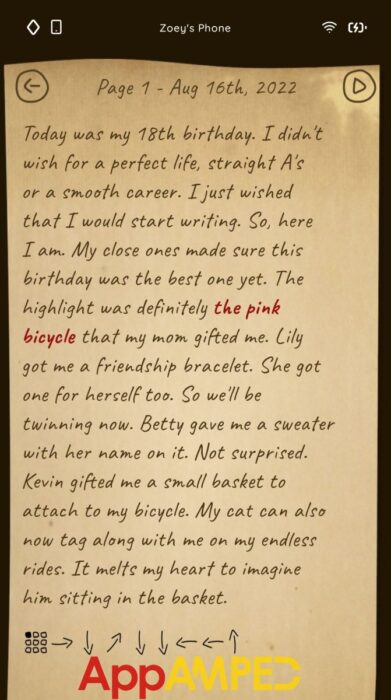 Zoey's Phone
Page 1 - Aug 16th, 2022
Today was my 18th birthday. I didn't
wish for a perfect life, straight A's
or a smooth career. I just wished
that I would start writing. So, here
I am. My close ones made sure this
birthday was the best one yet. The
highlight was definitely the pink
bicycle that my mom gifted me. Lily
got me a friendship bracelet. She got
one for herself too. So we'll be
twinning now. Betty gave me a sweater
with her name on it. Not surprised.
Kevin gifted me a small basket to
attach to my bicycle. My cat can also
now tag along with me on my endless
rides. It melts my heart to imagine
him sitting in the basket.
→ ↓ ↗ ↓ ↓ ← ← ↑
AppAMPED